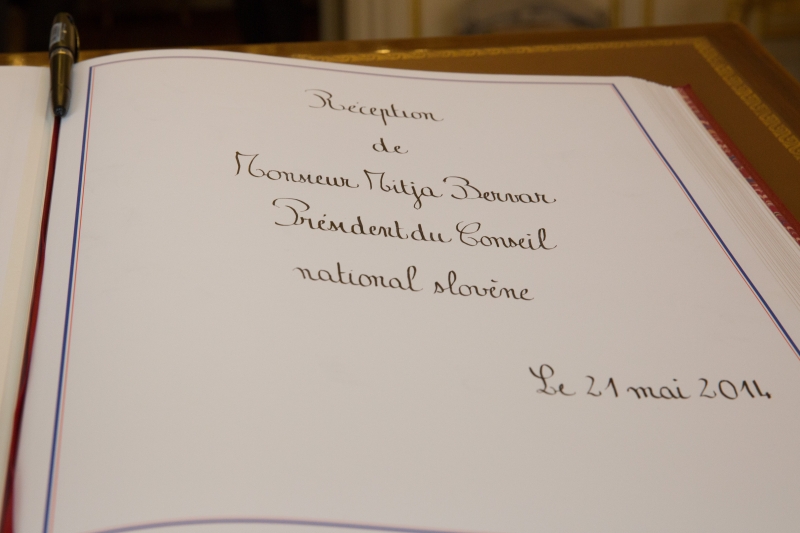 Réception
de
Monsieur Mitja Bervar
Président du Conseil
national slovène
Le 21 mai 2014